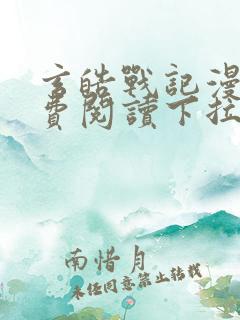 玄皓戰記漫
費閱讀下拉
南惜月
未经同意禁止转载